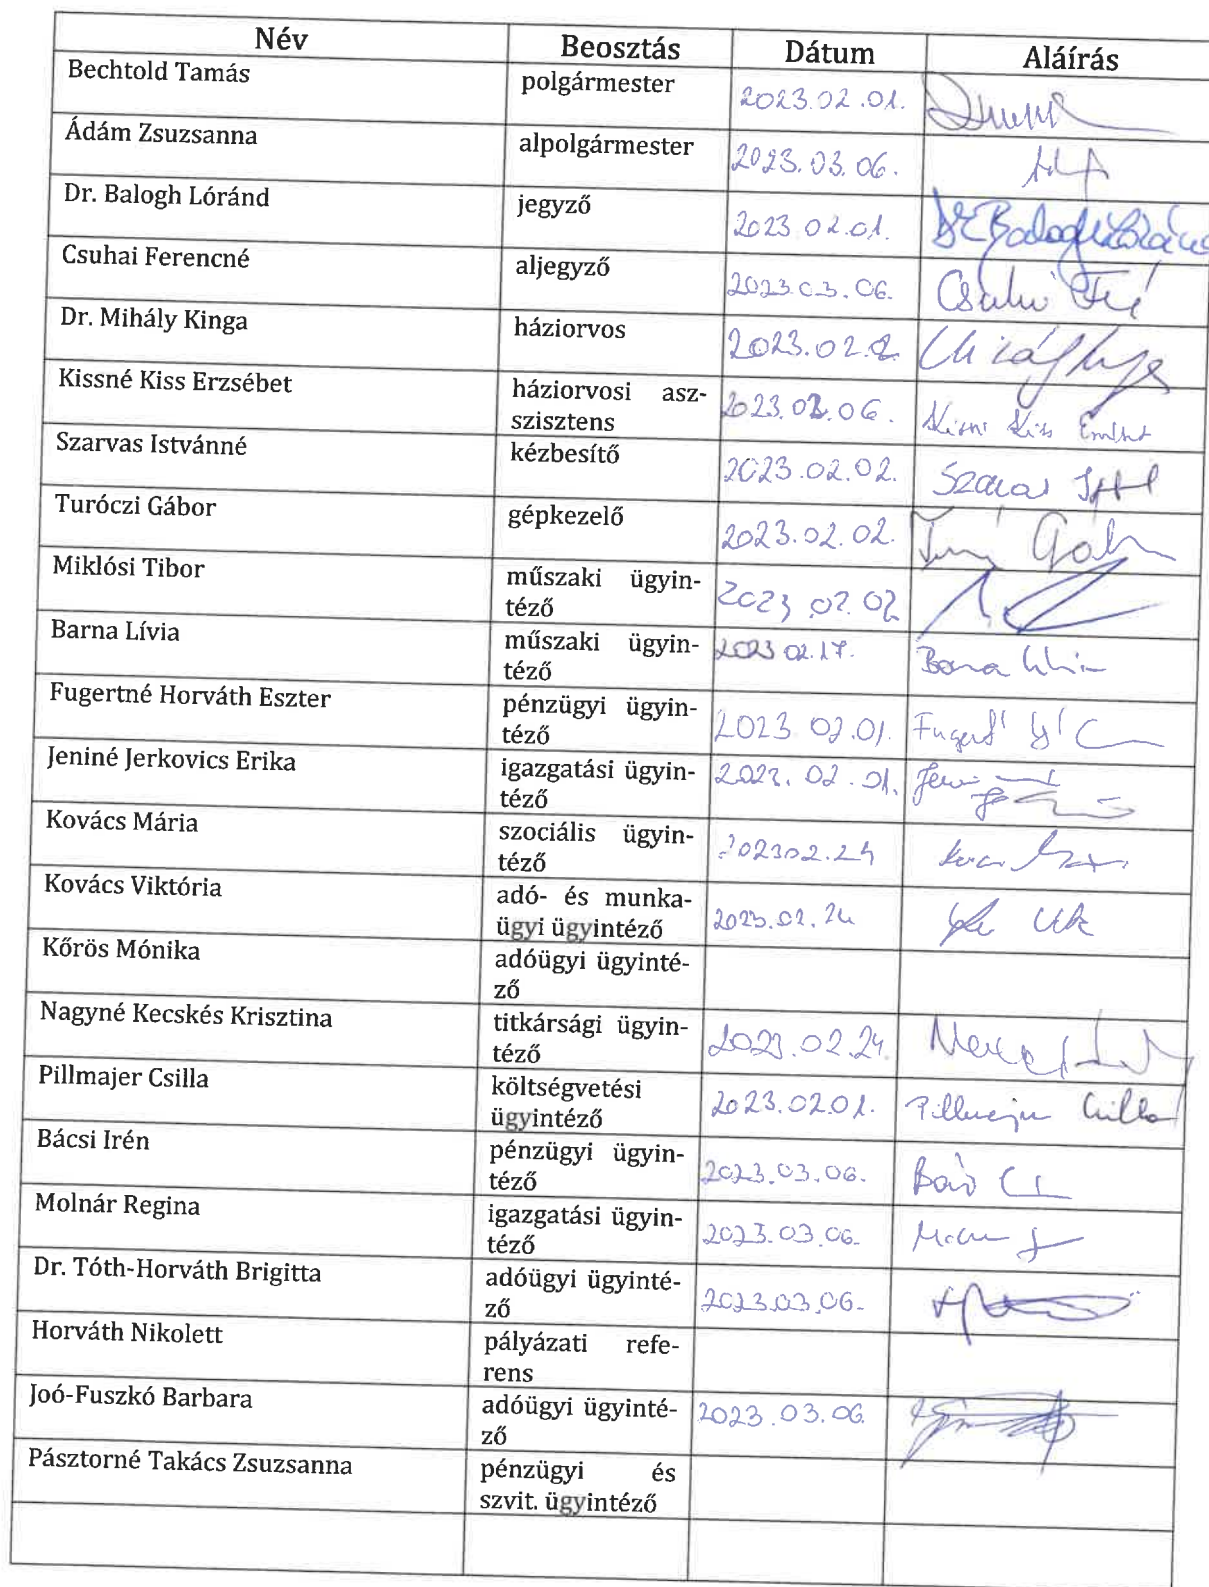 Név Beosztás Dátum Aláírás
Bechtold Tamás polgármester 2023.02.01.
Ádám Zsuzsanna alpolgármester 2023.03.06.
Dr. Balogh Lóránd jegyző 2023.02.01. Dr Balogh Lóránd
Csuhai Ferencné aljegyző 2023.03.06. Csuhai Fné
Dr. Mihály Kinga háziorvos 2023.02.2.
Kissné Kiss Erzsébet háziorvosi asz-
szisztens 2023.03.06. Kissné Kiss
Szarvas Istvánné kézbesítő 2023.02.02. Szarvas
Turóczi Gábor gépkezelő 2023.02.02. Gábor
Miklósi Tibor műszaki ügyin-
téző 2023.02.02
Barna Lívia műszaki ügyin-
téző 2023.02.17. Barna Lívia
Fugertné Horváth Eszter pénzügyi ügyin-
téző 2023.02.01.
Jeniné Jerkovics Erika igazgatási ügyin-
téző 2023.02.01.
Kovács Mária szociális ügyin-
téző 2023.02.24
Kovács Viktória adó- és munka-
ügyi ügyintéző 2023.02.24
Kőrös Mónika adóügyi ügyinté-
ző
Nagyné Kecskés Krisztina titkársági ügyin-
téző 2023.02.24.
Pillmajer Csilla költségvetési
ügyintéző 2023.02.01. Pillmajer Csilla
Bácsi Irén pénzügyi ügyin-
téző 2023.03.06.
Molnár Regina igazgatási ügyin-
téző 2023.03.06.
Dr. Tóth-Horváth Brigitta adóügyi ügyinté-
ző 2023.03.06.
Horváth Nikolett pályázati refe-
rens
Joó-Fuszkó Barbara adóügyi ügyinté-
ző 2023.03.06.
Pásztorné Takács Zsuzsanna pénzügyi és
szvit. ügyintéző